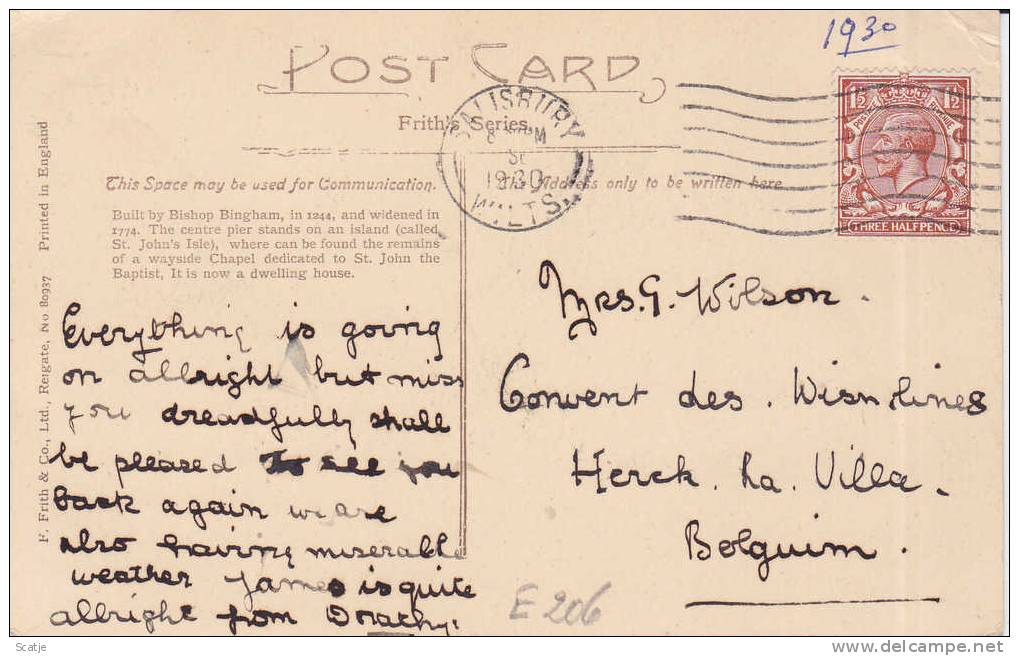 1930
POST CARD
Frith's Series.
SALISBURY
PM
1930
WILTS.
1½ 1½
POSTAGE REVENUE
THREE HALFPENCE
This Space may be used for Communication.
The Address only to be written here
Built by Bishop Bingham, in 1244, and widened in
1774. The centre pier stands on an island (called
St. John's Isle), where can be found the remains
of a wayside Chapel dedicated to St. John the
Baptist, It is now a dwelling house.
F. Frith & Co., Ltd., Reigate, No 80937 Printed in England
Everything is going
on allright but miss
you dreadfully shall
be pleased to see you
back again we are
also having miserable
weather James is quite
allright from Dorathy.
Mrs. G. Wilson.
Convent des. Wisnolines
Herck. La. Villa.
Bolguim.
E 206
Scatje
www.delcampe.net